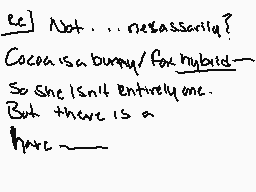 re] Not... nesassarily?
Cocoa is a bunny/fox hybrid—
So she isn't entirely one.
But there is a
hare —